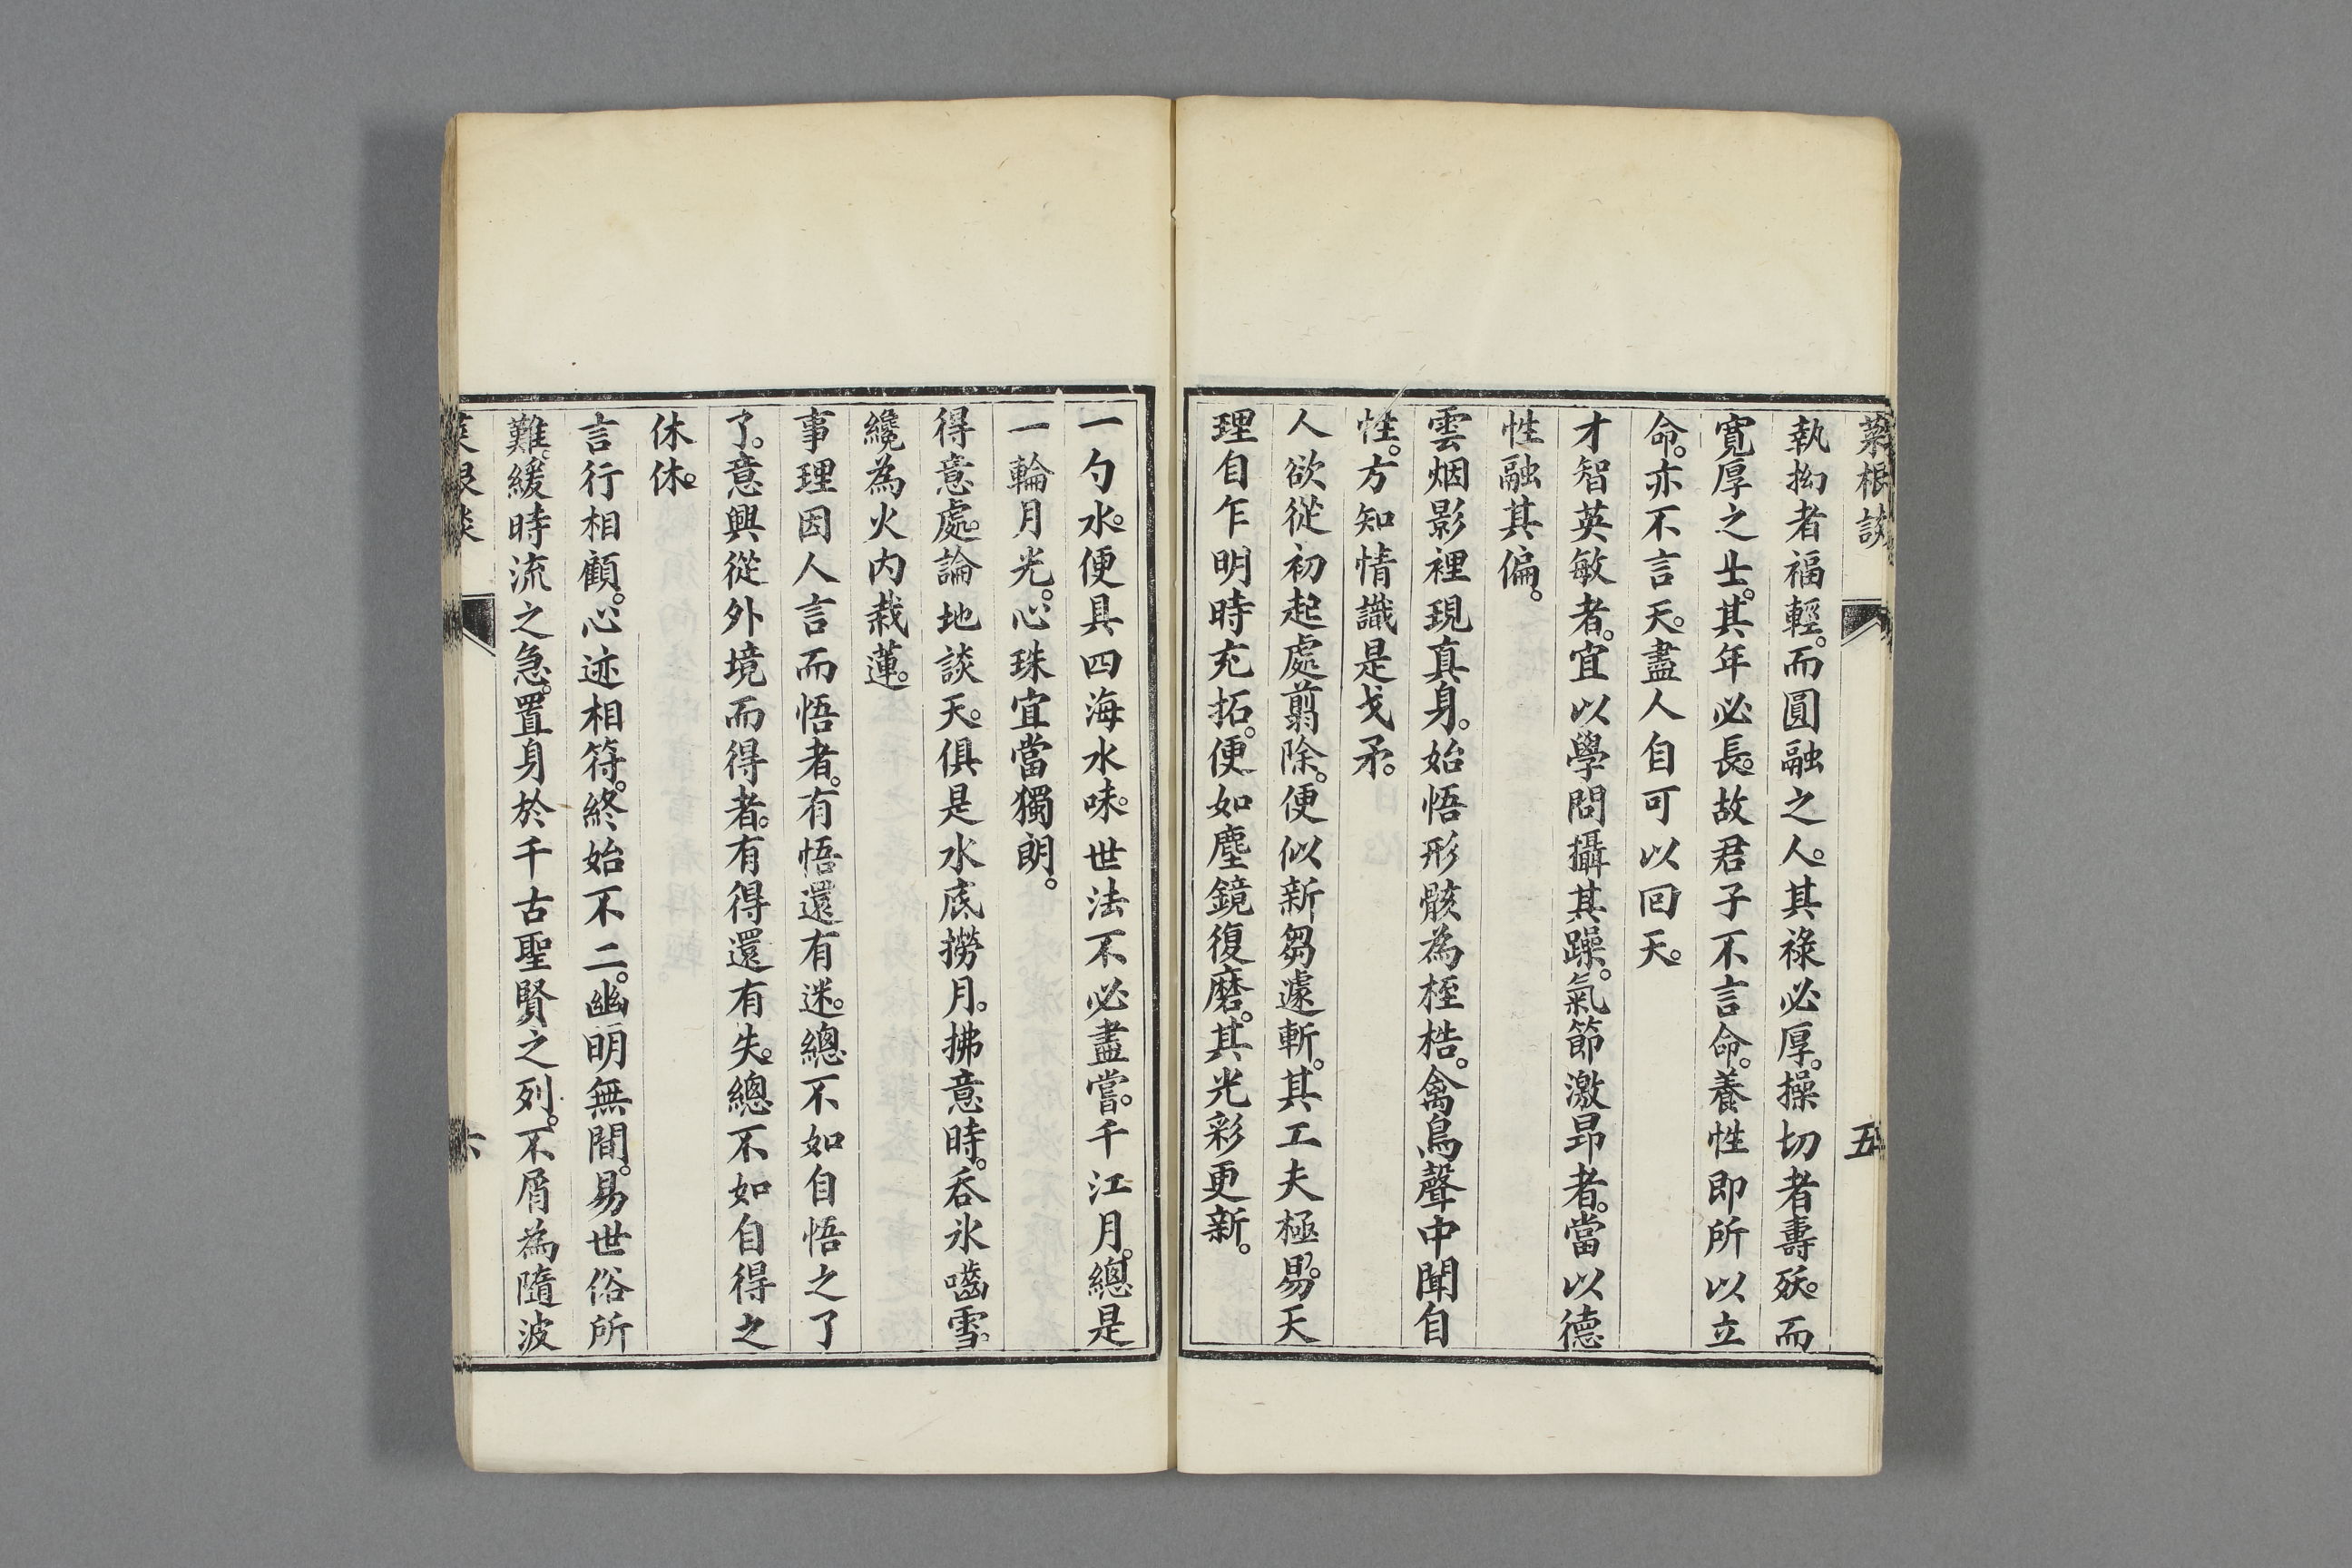 菜根談 五
執拗者福輕。而圓融之人。其祿必厚。操切者壽殀。而
寬厚之士。其年必長。故君子不言命。養性即所以立
命。亦不言天。盡人自可以回天。
才智英敏者。宜以學問攝其躁。氣節激昂者。當以德
性融其偏。
雲烟影裡現真身。始悟形骸為桎梏。禽鳥聲中聞自
性。方知情識是戈矛。
人欲從初起處翦除。便似新芻遽斬。其工夫極易。天
理自乍明時充拓。便如塵鏡復磨。其光彩更新。
一勺水。便具四海水味。世法不必盡嘗。千江月。總是
一輪月光。心珠宜當獨朗。
得意處。論地談天。俱是水底撈月。拂意時。吞氷嚙雪。
纔為火内栽蓮。
事理因人言而悟者。有悟還有迷。總不如自悟之了
了。意興從外境而得者。有得還有失。總不如自得之
休休。
言行相顧。心迹相符。終始不二。幽明無間。易世俗所
難。緩時流之急。置身於千古聖賢之列。不屑為隨波
菜根談 六